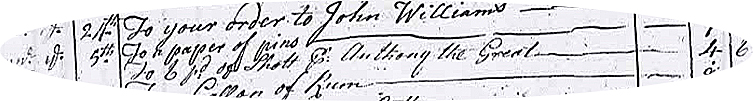 24th To your order to John Williams 1
5th To a paper of pins 4 6
To 6 pd of Shott Pr. Anthony the Great
Gallon of Rum